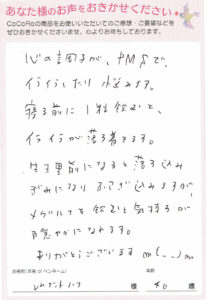 あなた様のお声をおきかせください
CoCoRoの商品をお使いいただいてのご感想・ご要望などを
ぜひおきかせくださいませ。心よりお待ちしております。
心の調子が、PMSで、
イライラしたり悩みます。
寝る前に1粒飲むと、
イライラが落ち着きます。
生理前になると落ち込み
ぎみになりふさぎ込みますが、
メグルナを飲むと気持ちが
穏やかになれます。
ありがとうございます m(_ _)m
お名前(本名 or ペンネーム)
年齢
様 40 歳